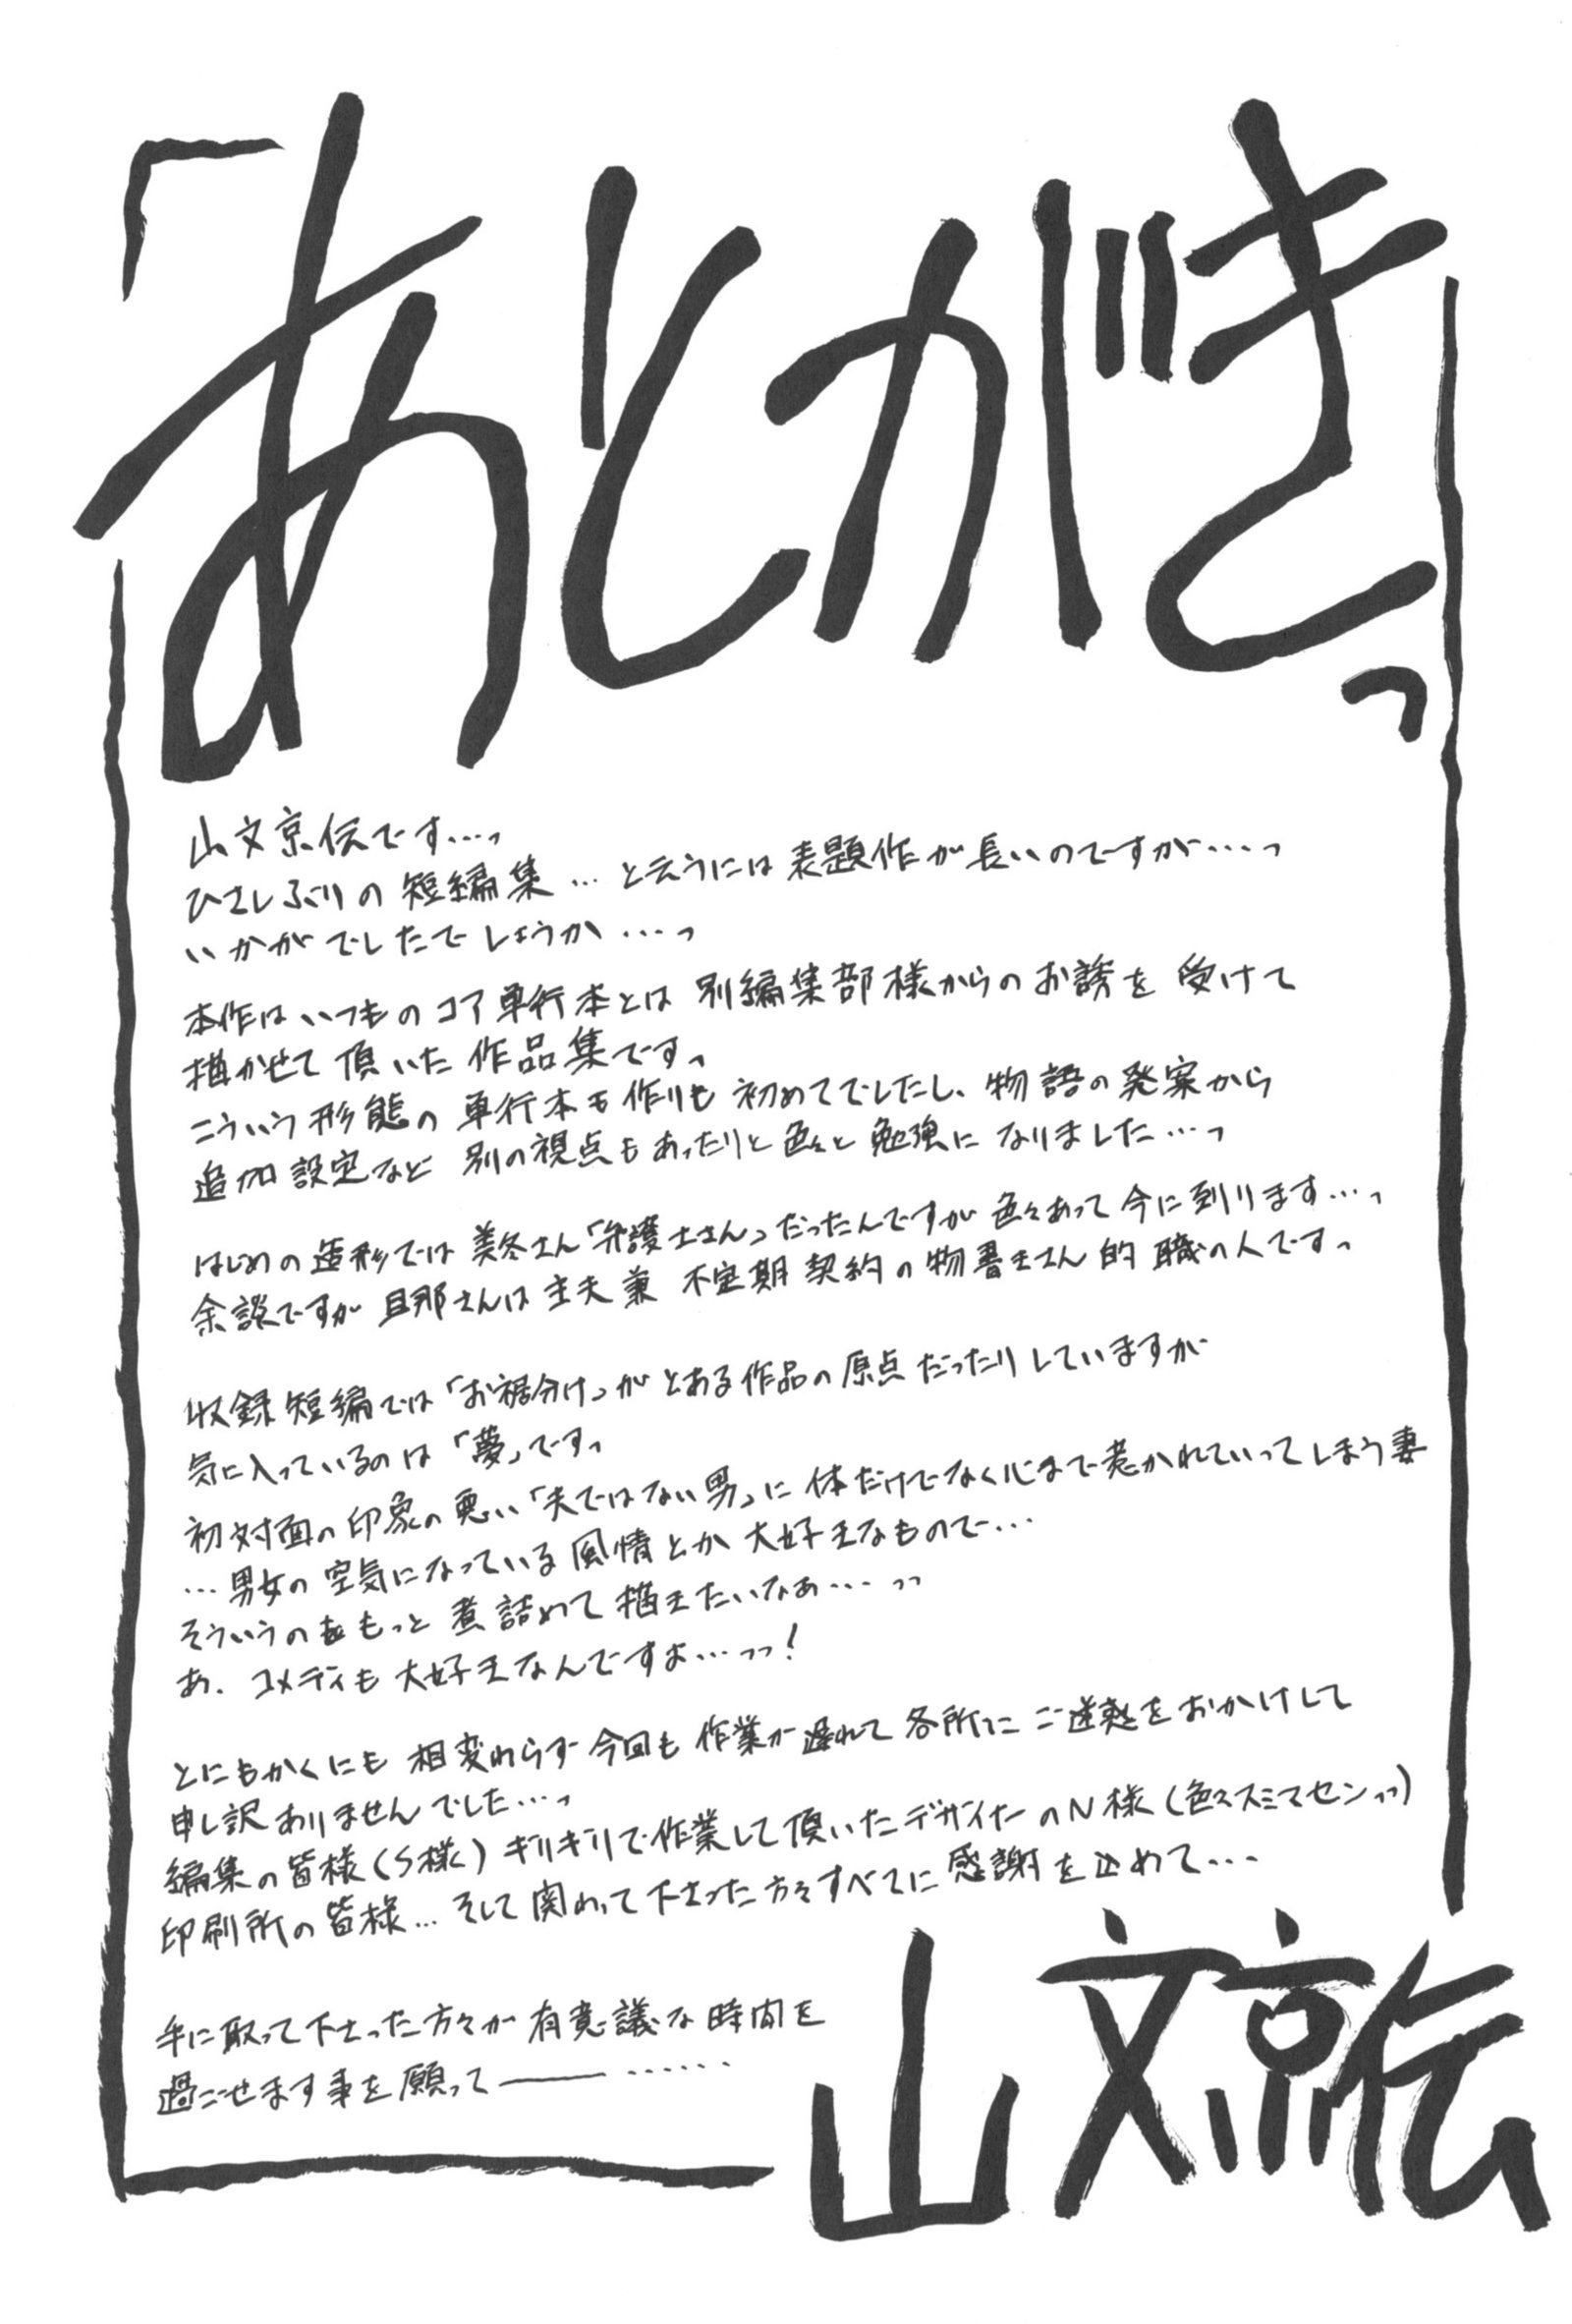 「あとがきっ
山文京伝です…っ
ひさしぶりの短編集…と云うには表題作が長いのですが…っ
いかがでしたでしょうか…っ
本作はいつものコアの単行本とは別編集部様からのお誘を受けて
描かせて頂いた作品集ですっ
こういう形態の単行本も作りも初めてでしたし、物語の発案から
追加設定など別の視点もあったりと色々と勉強になりました…っ
はじめの造形では美冬さん「弁護士さん」だったんですが色々あって今に到ります…っ
余談ですが旦那さんは主夫兼不定期契約の物書きさん的職の人ですっ
収録短編では「お裾分け」がとある作品の原点だったりしていますが
気に入っているのは「夢」ですっ
初対面の印象の悪い「夫ではない男」に体だけでなく心まで惹かれていってしまう妻
…男女の空気になっている風情とか大好きなもので…
そういうのをもっと煮詰めて描きたいなぁ…っっ
あ、コメディも大好きなんですよ…っっ！
とにもかくにも相変わらず今回も作業が遅れて各所にご迷惑をおかけして
申し訳ありませんでした…っ
編集の皆様（S様）ギリギリで作業して頂いたデザイナーのN様（色々スミマセンっっ）
印刷所の皆様…そして関わって下さった方々すべてに感謝を込めて…
手に取って下さった方々が有意議な時間を
過ごせます事を願って――……
山文京伝